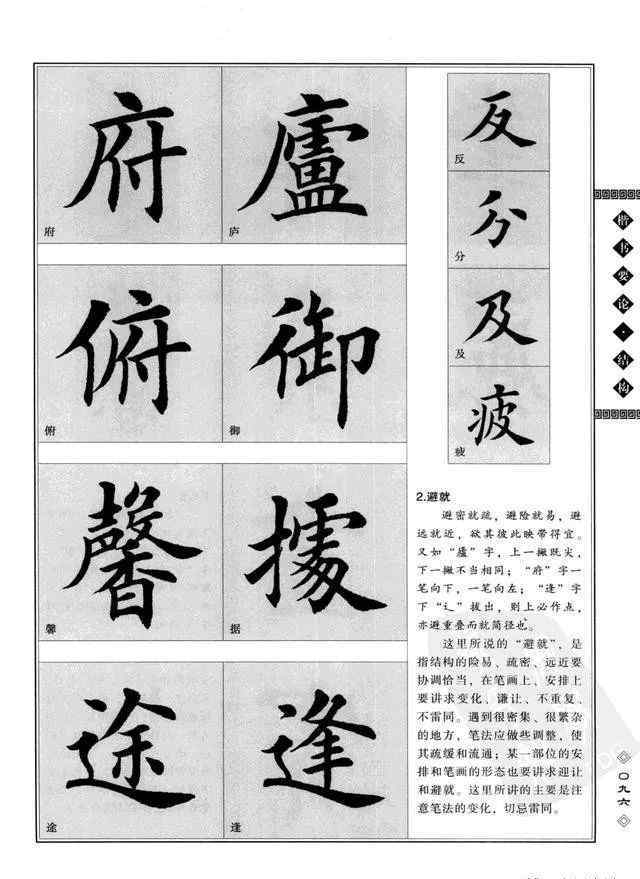 府
府
廬
庐
俯
俯
御
御
馨
馨
據
据
途
途
逢
逢
反
反
分
分
及
及
疲
疲
2.避就
避密就疏，避险就易，避
远就近，欲其彼此映带得宜。
又如“廬”字，上一撇既尖，
下一撇不当相同；“府”字一
笔向下，一笔向左；“逢”字
下“辶”拔出，则上必作点，
亦避重叠而就简径也。
这里所说的“避就”，是
指结构的险易、疏密、远近要
协调恰当，在笔画上、安排上
要讲求变化、谦让、不重复、
不雷同。遇到很密集、很繁杂
的地方，笔法应做些调整，使
其疏缓和流通；某一部位的安
排和笔画的形态也要讲求迎让
和避就。这里所讲的主要是注
意笔法的变化，切忌雷同。
楷书要论·结构
〇九六